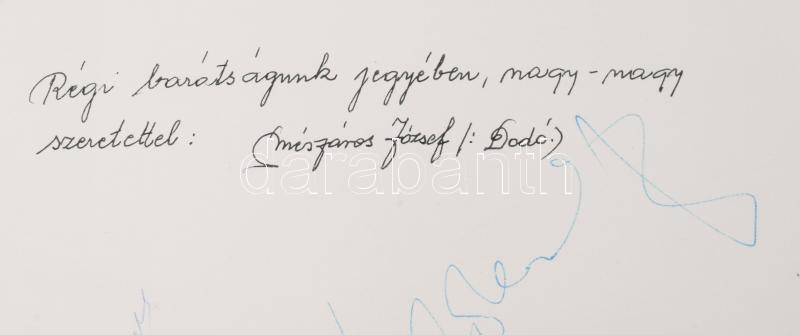 Régi barátságunk jegyében, nagy-nagy
szeretettel: (Mészáros József /: Dodó:)
darabanth